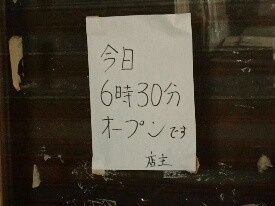 今日
6時30分
オープンです
店主